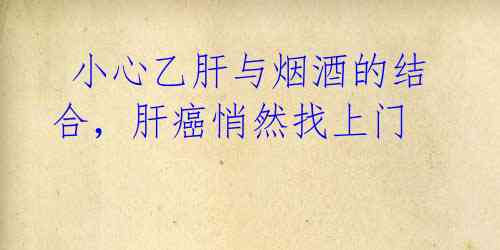 小心乙肝与烟酒的结
合，肝癌悄然找上门